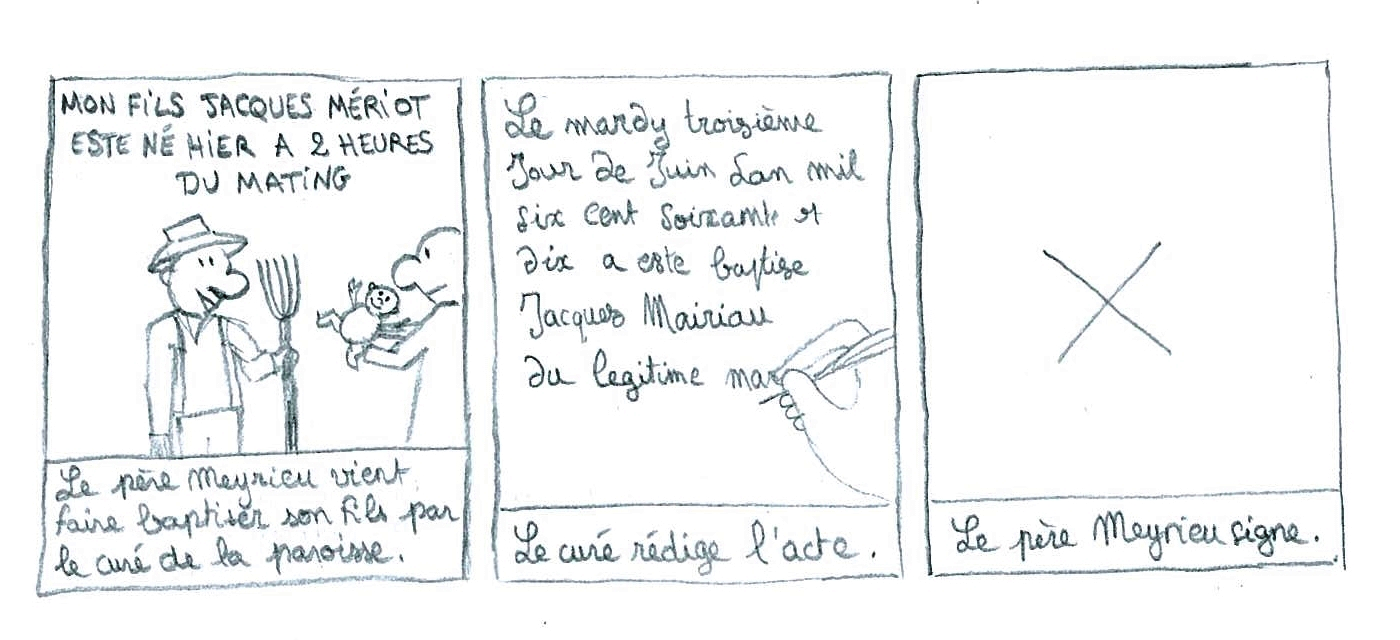 MON FILS JACQUES MÉRIOT
ESTE NÉ HIER A 2 HEURES
DU MATING
Le père Meyrieu vient
faire baptiser son fils par
le curé de la paroisse.
Le mardy troizième
Jour de Juin Lan mil
six cent soixante et
dix a este baptize
Jacques Mairiau
du legitime mar
Le curé rédige l'acte.
Le père Meyrieu signe.